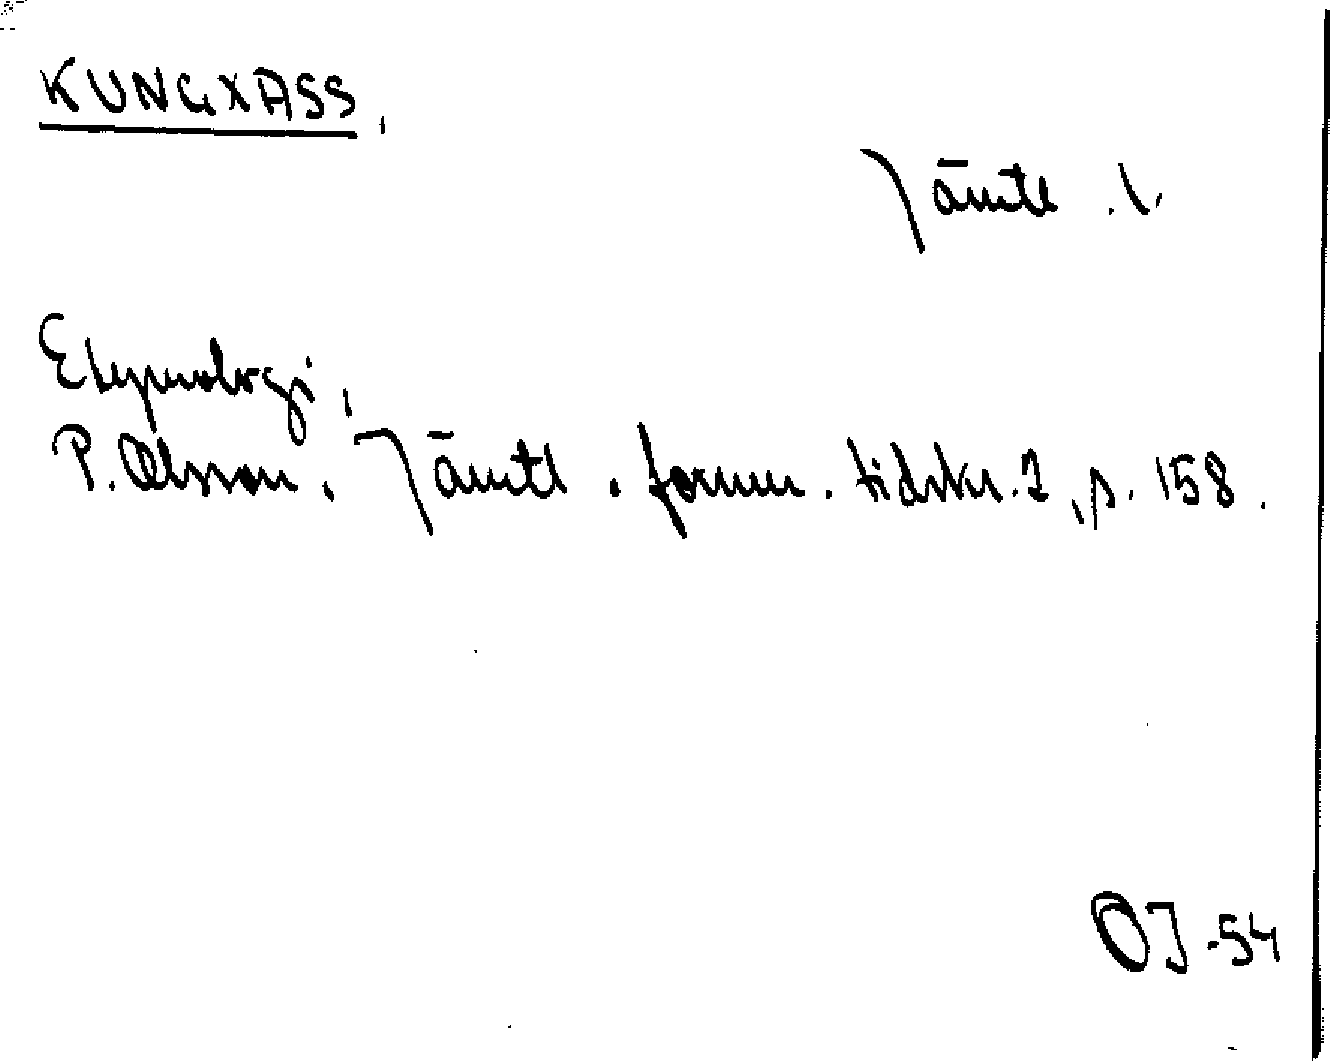 KUNGXASS,
Jämtl.
Etymologi,
P. Olsson. Jämtl. fornm. tidskr. 2, s. 158.
OJ-54